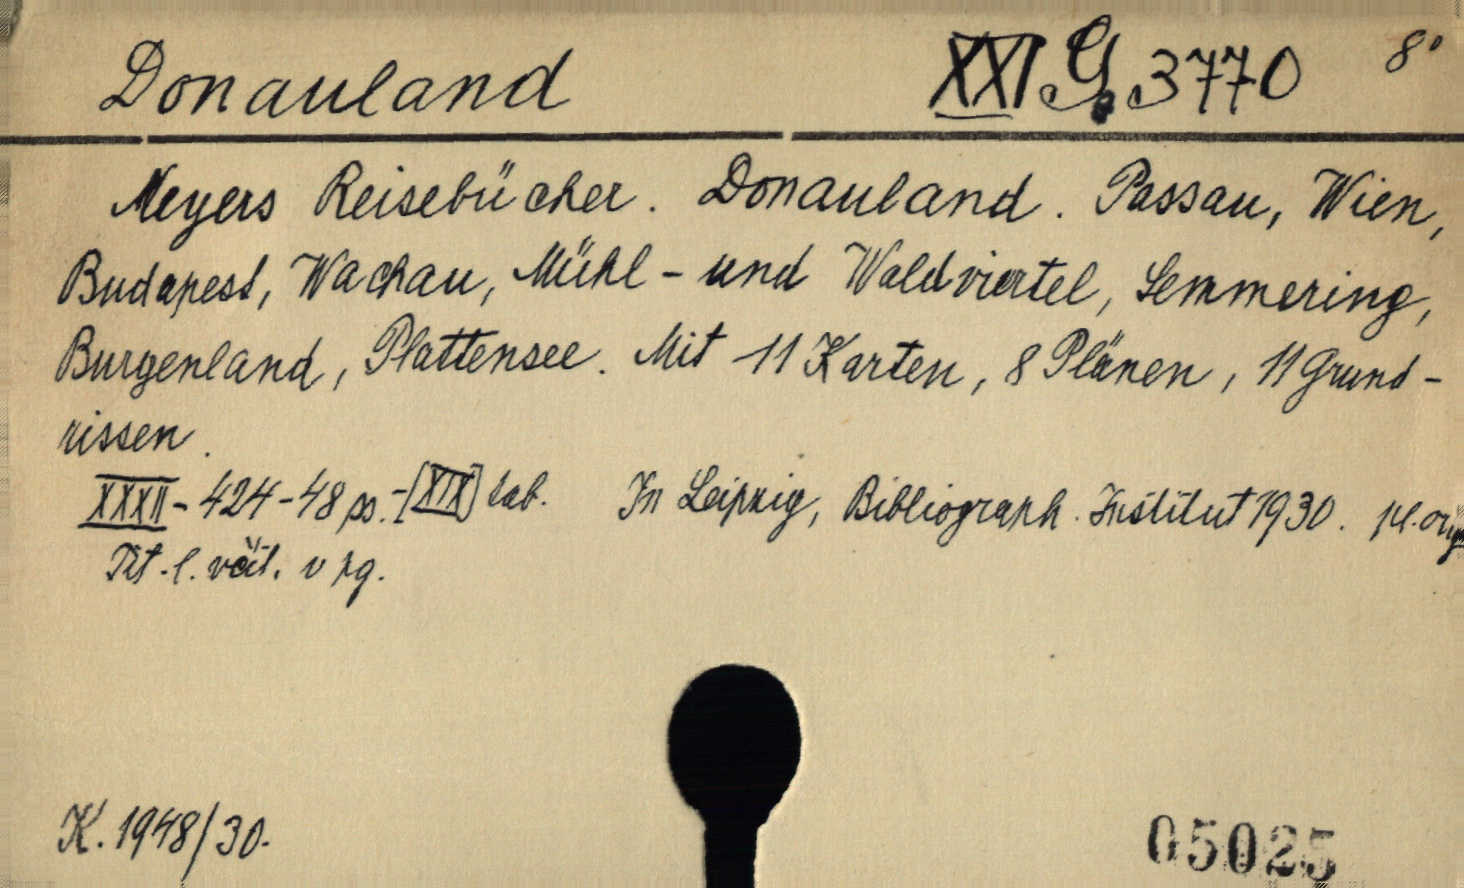 Donauland XXI G 3770 8°
Meyers Reisebücher. Donauland. Passau, Wien,
Budapest, Wachau, Mühl- und Waldviertel, Semmering,
Burgenland, Plattensee. Mit 11 Karten, 8 Plänen, 11 Grund-
rissen.
XXXII-424-48 ss.-[XIX] tab. In Leipzig, Bibliograph. Institut 1930. pl. org
v
K. 1948/30.
05025